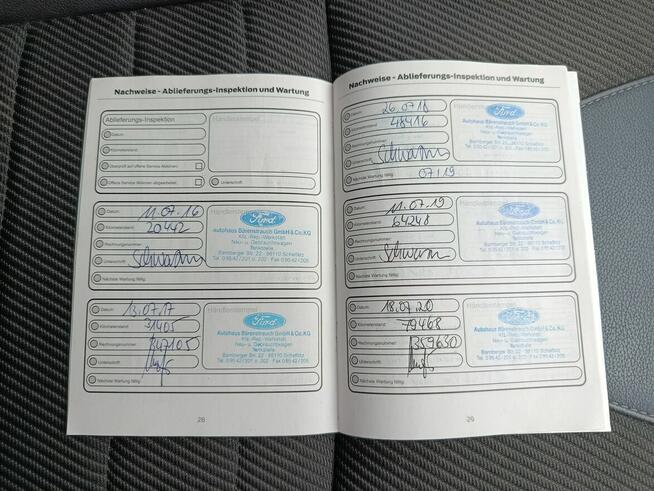 Nachweise - Ablieferungs-Inspektion und Wartung
Ablieferungs-Inspektion
Händlerstempel
Datum
Kilometerstand
Überprüft auf offene Service-Aktionen
Offene Service-Aktionen abgearbeitet
Unterschrift
Datum 11.07.16
Kilometerstand 20442
Rechnungsnummer
Unterschrift
Nächste Wartung fällig
Händlerstempel
Ford
Autohaus Bärenstrauch GmbH & Co. KG
Kfz.-Rep.-Werkstatt
Neu- u. Gebrauchtwagen
Tankstelle
Bamberger Str. 22 · 96110 Scheßlitz
Datum 13.07.17
Kilometerstand 31405
Rechnungsnummer
Unterschrift
Nächste Wartung fällig
Händlerstempel
Ford
Autohaus Bärenstrauch GmbH & Co. KG
Kfz.-Rep.-Werkstatt
Neu- u. Gebrauchtwagen
Tankstelle
Bamberger Str. 22 · 96110 Scheßlitz
28
Nachweise - Ablieferungs-Inspektion und Wartung
Datum 26.07.18
Kilometerstand 48916
Rechnungsnummer
Unterschrift
Nächste Wartung fällig 07/19
Händlerstempel
Ford
Autohaus Bärenstrauch GmbH & Co. KG
Kfz.-Rep.-Werkstatt
Neu- u. Gebrauchtwagen
Tankstelle
Bamberger Str. 22 · 96110 Scheßlitz
Datum 11.07.19
Kilometerstand 64248
Rechnungsnummer
Unterschrift
Nächste Wartung fällig
Händlerstempel
Ford
Autohaus Bärenstrauch GmbH & Co. KG
Kfz.-Rep.-Werkstatt
Neu- u. Gebrauchtwagen
Tankstelle
Bamberger Str. 22 · 96110 Scheßlitz
Datum 18.07.20
Kilometerstand 79468
Rechnungsnummer 359630
Unterschrift
Nächste Wartung fällig
Händlerstempel
Ford
Autohaus Bärenstrauch GmbH & Co. KG
Kfz.-Rep.-Werkstatt
Neu- u. Gebrauchtwagen
Tankstelle
Bamberger Str. 22 · 96110 Scheßlitz
29